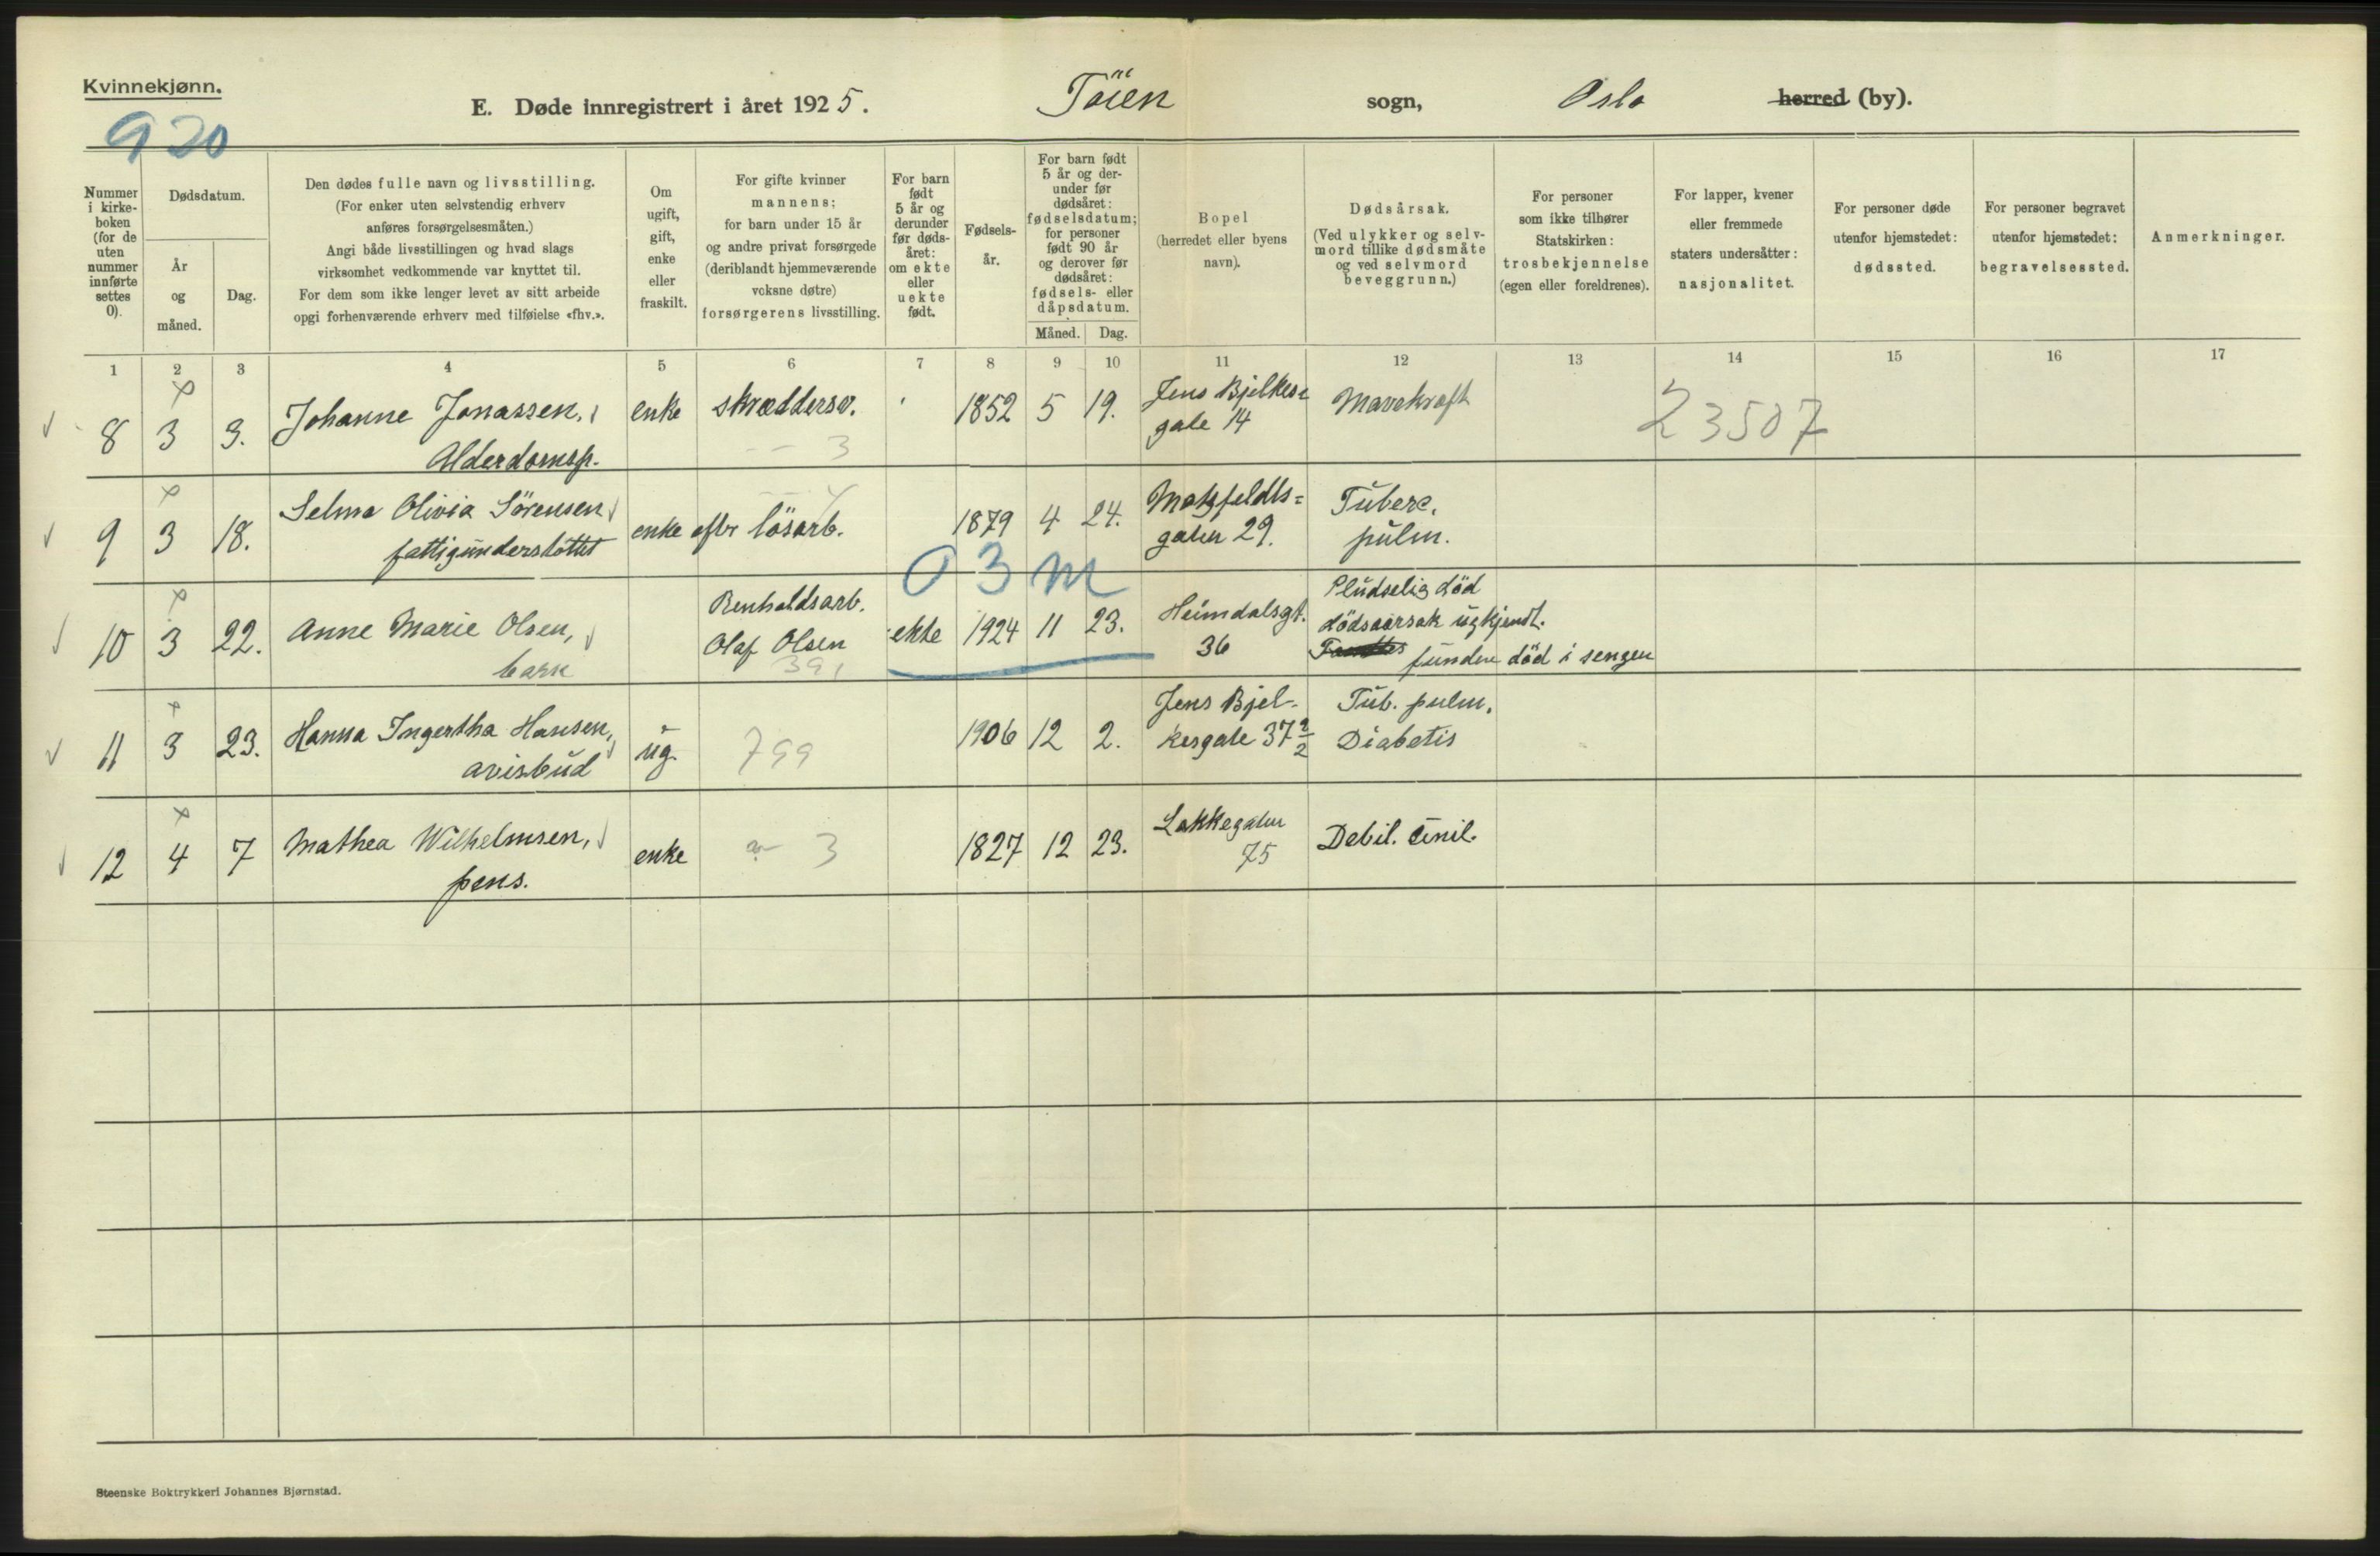 Kvinnekjønn.
920
E. Døde innregistrert i året 1925. Töien sogn, Oslo herred (by).
Nummer i kirke-boken (for de uten nummer innførte settes 0).
Dødsdatum.
År og måned.
Dag.
Den dødes fulle navn og livsstilling.
(For enker uten selvstendig erhverv
anføres forsørgelsesmåten.)
Angi både livsstillingen og hvad slags
virksomhet vedkommende var knyttet til.
For dem som ikke lenger levet av sitt arbeide
opgi forhenværende erhverv med tilføielse «fhv.».
Om
ugift,
gift,
enke
eller
fraskilt.
For gifte kvinner
mannens;
for barn under 15 år
og andre privat forsørgede
(deriblandt hjemmeværende
voksne døtre)
forsørgerens livsstilling.
For barn
født
5 år og
derunder
før døds-
året:
om ekte
eller
uekte
født.
Fødsels-
år.
For barn født
5 år og der-
under før
dødsåret:
fødselsdatum;
for personer
født 90 år
og derover før
dødsåret:
fødsels- eller
dåpsdatum.
Måned. Dag.
Bopel
(herredet eller byens
navn).
Dødsårsak.
(Ved ulykker og selv-
mord tillike dødsmåte
og ved selvmord
beveggrunn.)
For personer
som ikke tilhører
Statskirken:
trosbekjennelse
(egen eller foreldrenes).
For lapper, kvener
eller fremmede
staters undersåtter:
nasjonalitet.
For personer døde
utenfor hjemstedet:
dødssted.
For personer begravet
utenfor hjemstedet:
begravelsessted.
Anmerkninger.
1 2 3 4 5 6 7 8 9 10 11 12 13 14 15 16 17
8 3 3. Johanne Jonassen, enke skræddersv. 1852 5 19. Jens Bjelkes= Mavekræft 23507
Alderdomsp. 3 gate 14
9 3 18. Selma Olivia Sörensen enke eftr lösarb. 1879 4 24. Motzfeldts= Tüberc.
fattigünderstöttet gaten 29. pülm.
0 3 m
10 3 22. Anne Marie Olsen, Renholdsarb. ekte 1924 11 23. Heimdalsgt. Plüdselig död
barn Olaf Olsen 36 dödsaarsak ügkjendt.
391 fünden död i sengen
11 3 23. Hanna Ingertha Hansen, üg. 799 1906 12 2. Jens Bjel- Tüb. pulm.
avisbüd kesgate 37 2/2 Diabetis
12 4 7 Mathea Wilhelmsen, enke 3 1827 12 23. Lakkegaten Debil. senil.
pens. 75
Steenske Boktrykkeri Johannes Bjørnstad.